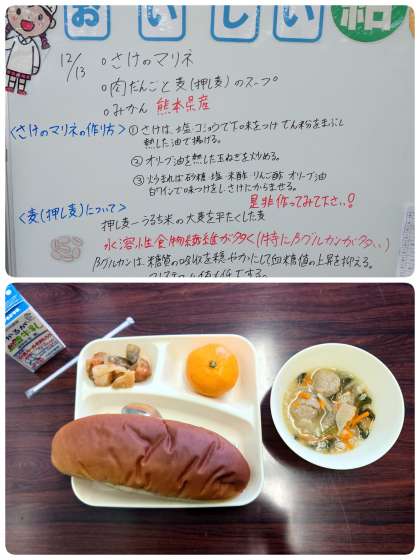 おいしい給
12/13 ○さけのマリネ
○肉だんごと麦(押し麦)のスープ
○みかん 熊本県産
<さけのマリネの作り方> ①さけは、塩・コショウで下味をつけ でん粉をまぶし
熱した油で揚げる。
② オリーブ油を熱し玉ねぎを炒める。
③ 火が通れば砂糖・塩・米酢・りんご酢・オリーブ油
白ワインで味つけをし、さけにからませる。
是非作ってみて下さい!
<麦(押し麦)について>
押し麦→うるち米の大麦を平たくした麦
水溶性食物繊維が多く(特にβグルカンが多い)
βグルカンは、糖質の吸収を穏やかにして血糖値の上昇を抑える。
牛乳